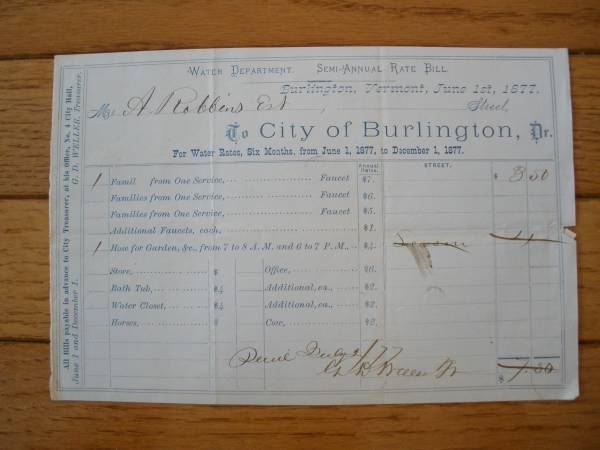 WATER DEPARTMENT. SEMI-ANNUAL RATE BILL.
Burlington, Vermont, June 1st, 1877.
M A Robbins Est Street,
To City of Burlington, Dr.
For Water Rates, Six Months, from June 1, 1877, to December 1, 1877.
ANNUAL RATES. STREET.
1 Famil from One Service, Faucet $7. $ 3 50
Families from One Service, Faucet $6.
Families from One Service, Faucet $5.
Additional Faucets, each, $1.
1 Hose for Garden, &c., from 7 to 8 A.M. and 6 to 7 P.M., $4. 4
Store, $ Office, $6.
Bath Tub, $4 Additional, ea., $2.
Water Closet, $4 Additional, ea., $2.
Horses, Cow, $2.
77
$ 7.50
All Bills payable in advance to City Treasurer, at his Office, No. 4 City Hall,
June 1 and December 1. G. D. WELLER, Treasurer.